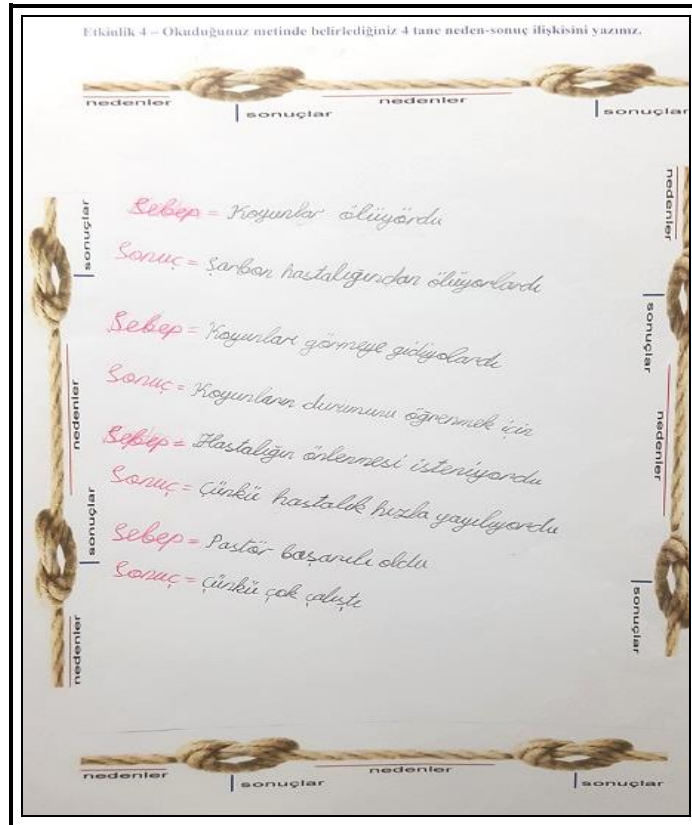 Etkinlik 4 – Okuduğunuz metinde belirlediğiniz 4 tane neden-sonuç ilişkisini yazınız.
nedenler
sonuçlar
nedenler
sonuçlar
sonuçlar
nedenler
sonuçlar
nedenler
Sebep = Koyunlar ölüyördu
Sonuç = Şarbon hastalığından ölüyorlardı
Sebep = Koyunları görmeye gidiyolardı
Sonuç = Koyunların durumunu öğrenmek için
Sebep = Hastalığın önlenmesi isteniyordu
Sonuç = Çünkü hastalık hızla yayılıyordu
Sebep = Pastör başarılı oldu
Sonuç = Çünkü çok çalıştı
nedenler
sonuçlar
nedenler
sonuçlar
nedenler
sonuçlar
nedenler
sonuçlar